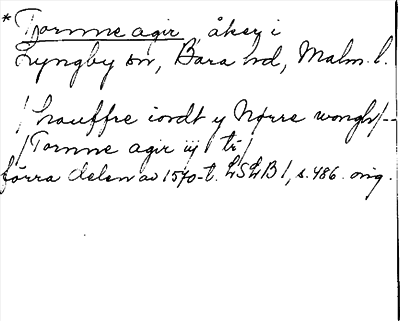 * Tornne agir, åker i
Lyngby sn, Bara hd, Malm. l.
/ hauffre iordt y Nørre wongh/--
/Tornne agir iij tr/
förra delen av 1570-t. LSLB 1, s. 486. orig.